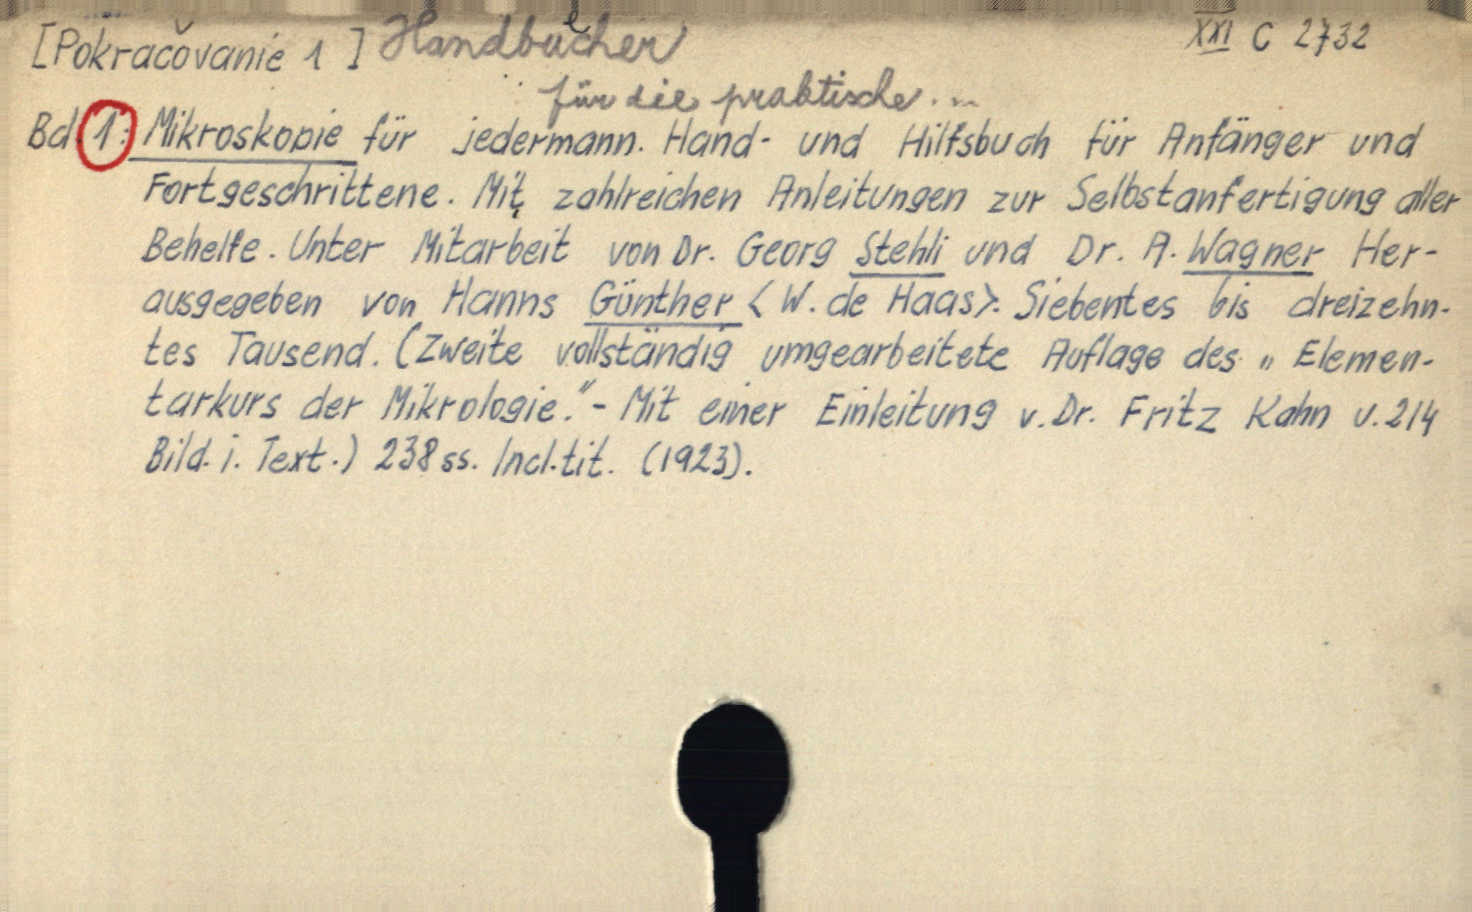 [Pokračovanie 1] Handbücher XXI C 2732
für die praktische...
Bd. 1: Mikroskopie für jedermann. Hand- und Hilfsbuch für Anfänger und
Fortgeschrittene. Mit zahlreichen Anleitungen zur Selbstanfertigung aller
Behelfe. Unter Mitarbeit von Dr. Georg Stehli und Dr. A. Wagner Her-
ausgegeben von Hanns Günther <W. de Haas>. Siebentes bis dreizehn-
tes Tausend. (Zweite vollständig umgearbeitete Auflage des „Elemen-
tarkurs der Mikrologie." - Mit einer Einleitung v. Dr. Fritz Kahn u. 214
Bild. i. Text.) 238 ss. Incl. tit. (1923).